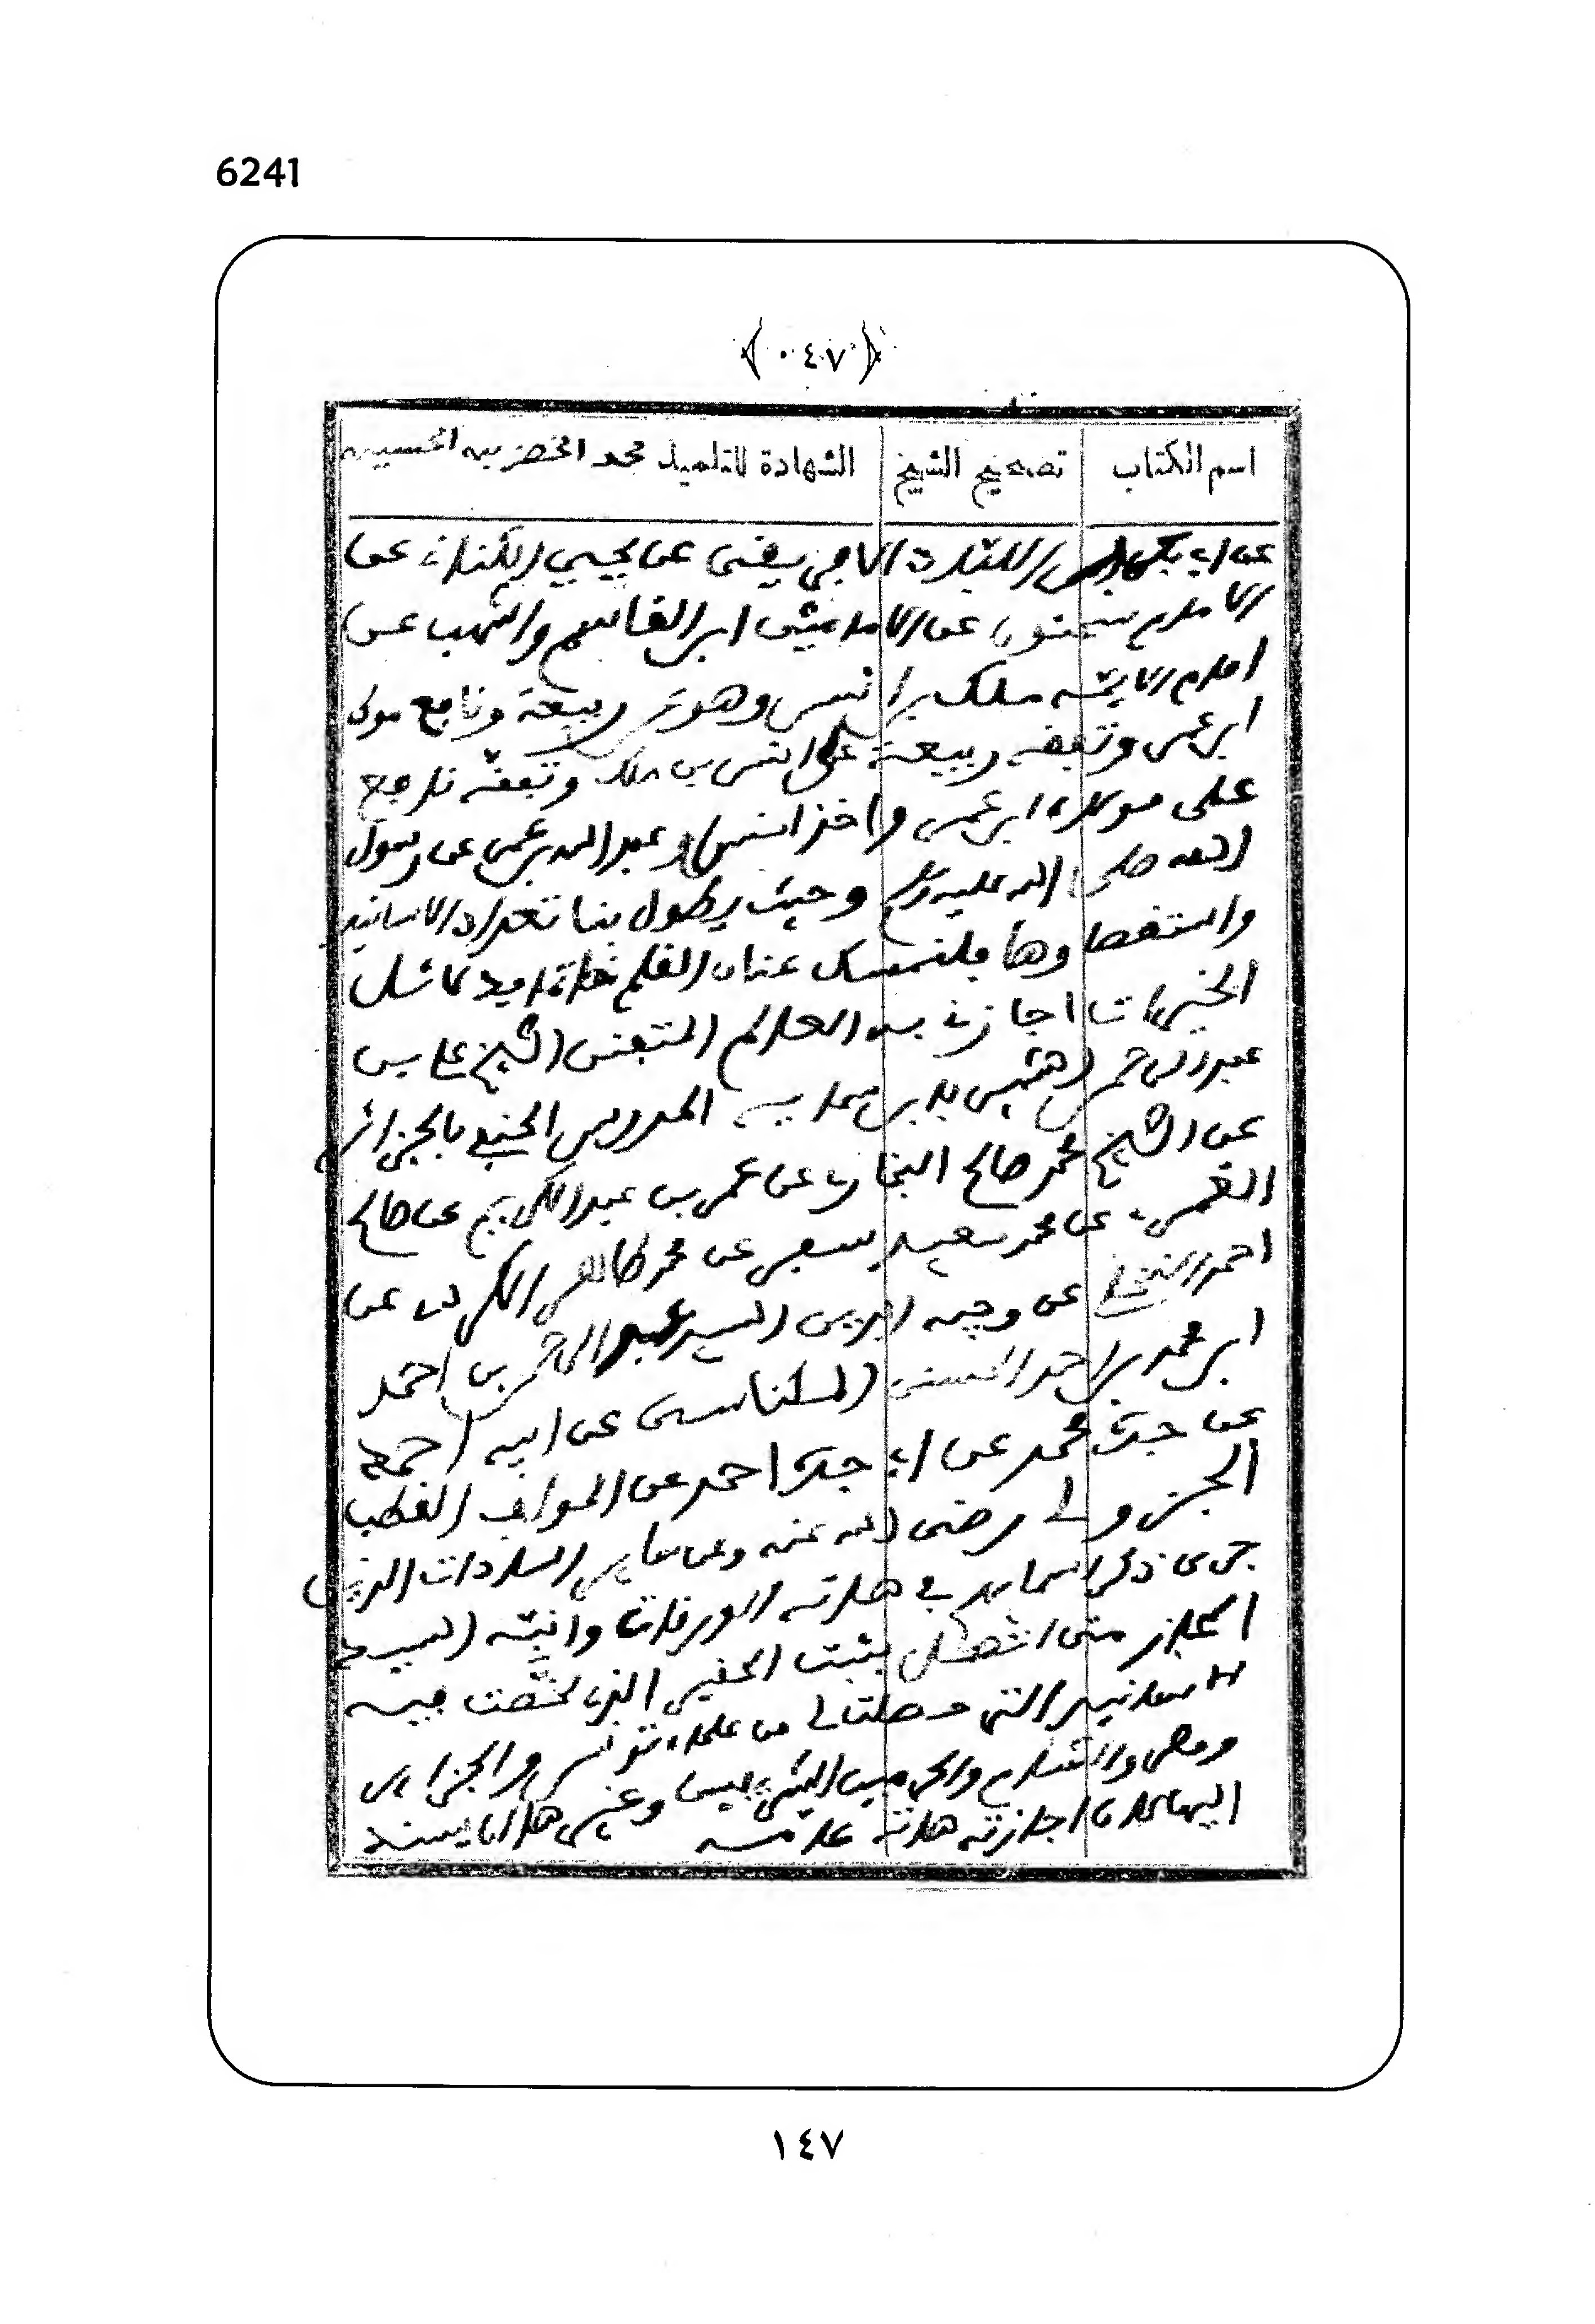 6241
﴿٠٤٧﴾
اسم الكتاب تصحيح الشيخ الشهادة للتلميذ محمد الخضر بن الحسين
عن أبي بكر اللباد الافريفى عن يحيى الكناني عن
الامام سحنون عن الامامين ابن القاسم واشهب عن
امام الايمة ملك بن انس وهو عن ربيعة ونابع مولى
ابن عمر وتفقه ربيعة على انس بن ملك وتفقه نابع
على مولاه ابن عمر واخذ انس وعبد الله بن عمر عن رسول
الله صلى الله عليه وسلم وحيث يطول بنا تعداد الاسانيد
واستقصاوها بلنمسك عنان القلم
الخيرات اجازني به العالم المتفنن الشيخ علي بن
عبد الرحمن المدرس الحنفي بالجزائر
عن الشيخ محمد صالح البخاري عن عمر بن عبد الكريم عن صالح
عن محمد سعيد سفر عن محمد طاهر الكردي عن
احمد النخلي عن وجيه الدين السيد عبد الرحمن بن احمد
ابن محمد بن احمد الحسني المكناسي عن ابيه احمد
عن جده محمد عن ابي جده احمد عن المولف القطب
الجزولي رضي الله عنه وعن ساير السادات الذين
جرى ذكر اسمايهم في هاته الورقات وانبه السيد
المجاز متى اتصل بثبت الحقير الذي لخصت فيه
الاسانيد التي وصلت لي من علماء تونس والجزاير
ومصر والشام والحرمين الشريفين وغير هذا يسند
اليها اجازته هاته علامة
١٤٧